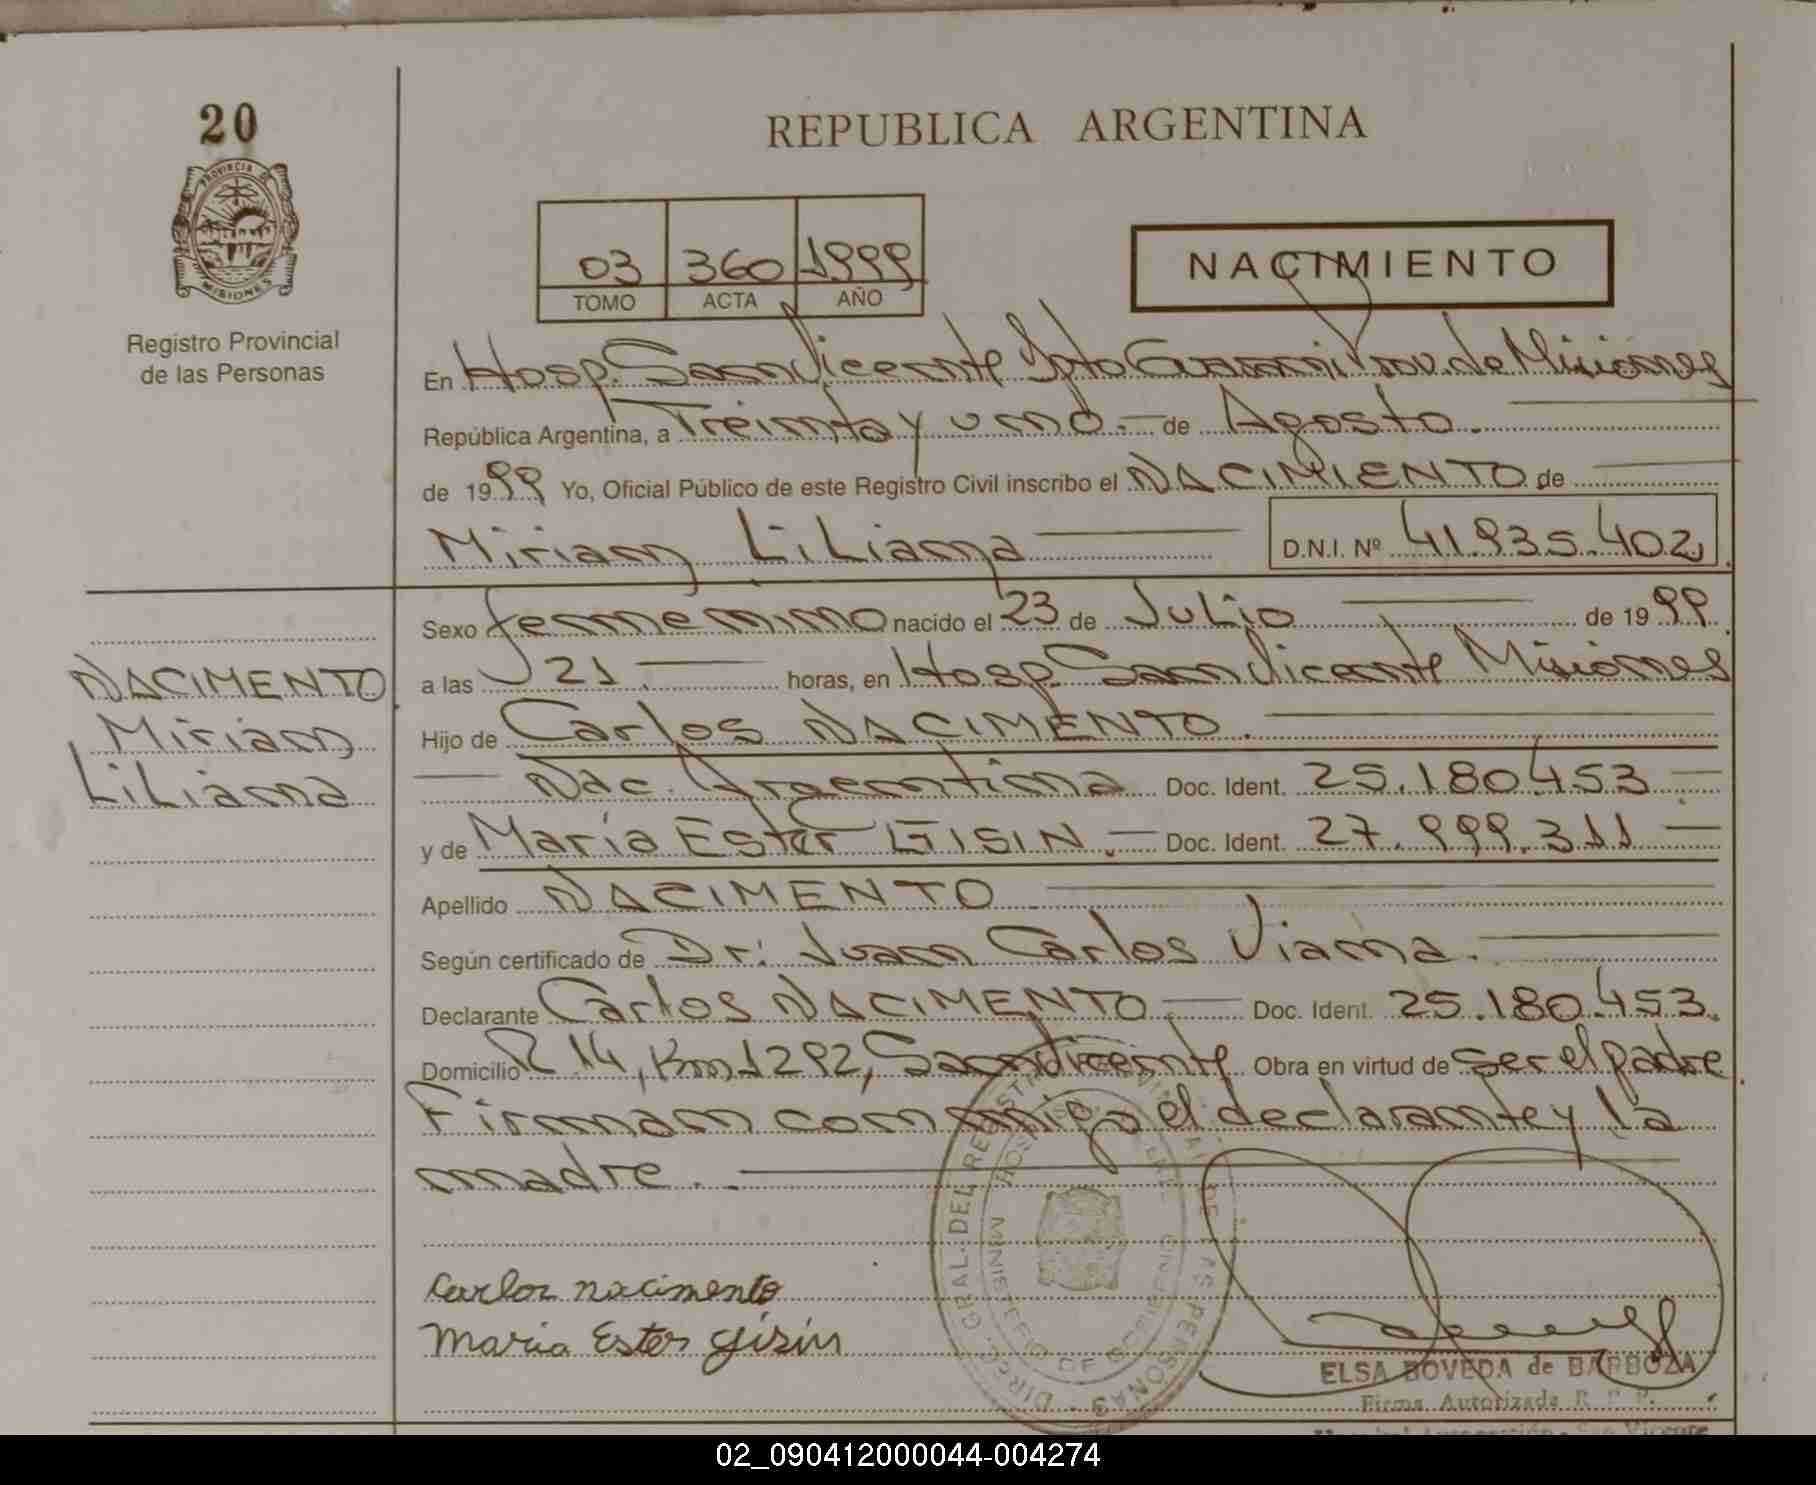 20
PROVINCIA DE
MISIONES
Registro Provincial
de las Personas
REPUBLICA ARGENTINA
03 360 1999
TOMO ACTA AÑO
NACIMIENTO
En Hosp. San Vicente Dpto Guarani Prov. de Misiones
República Argentina, a Treinta y uno.— de Agosto.
de 1999 Yo, Oficial Público de este Registro Civil inscribo el NACIMIENTO de
Miriam Liliana D.N.I. Nº 41.935.402
Sexo femenino nacido el 23 de Julio de 1999
a las 21.— horas, en Hosp. San Vicente Misiones
NACIMENTO
Miriam
Liliana
Hijo de Carlos NACIMENTO.
Nac. Argentina Doc. Ident. 25.180.453 —
y de María Ester GISIN.— Doc. Ident. 27.999.311 —
Apellido NACIMENTO
Según certificado de Dr: Juan Carlos Viana.
Declarante Carlos NACIMENTO — Doc. Ident. 25.180.453.
Domicilio R 14, Km 1292, San Vicente Obra en virtud de ser el padre
Firman conmigo el declarante y la
madre..
Carlos nacimento
Maria Ester gisin
DIREC. GRAL. DEL REGISTRO PROVINCIAL DE LAS PERSONAS
MINISTERIO DE GOBIERNO
ELSA BOVEDA de BARBOZA
Firma Autorizada R. P. P.
02_090412000044-004274